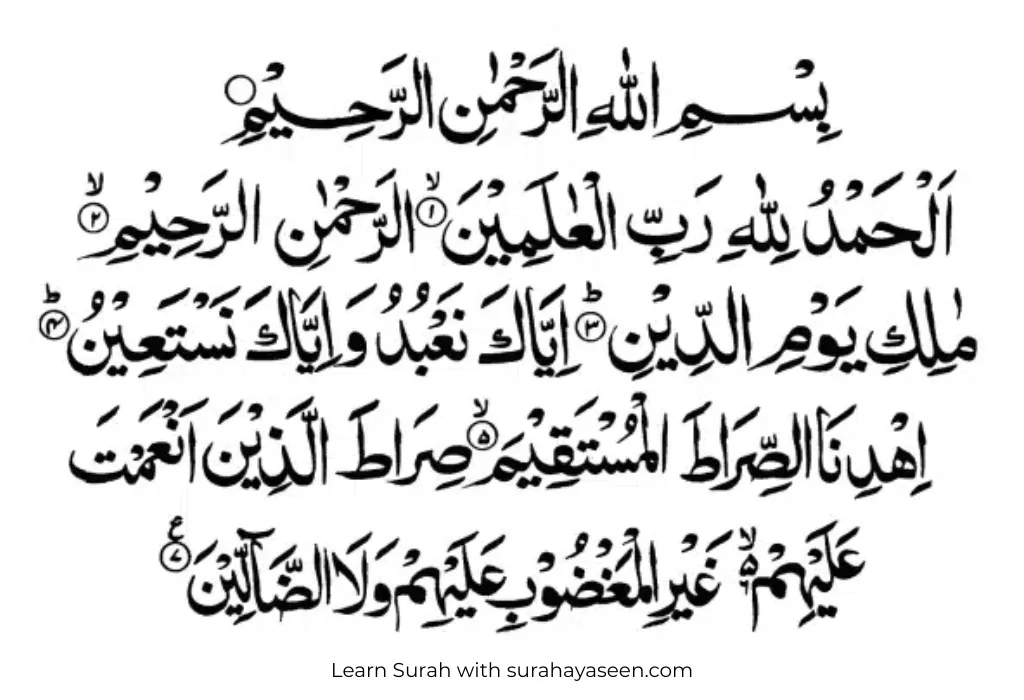 بِسْمِ اللهِ الرَّحْمٰنِ الرَّحِيْمِ ○
اَلْحَمْدُ لِلّٰهِ رَبِّ الْعٰلَمِيْنَ ۙ﴿۱﴾ الرَّحْمٰنِ الرَّحِيْمِ ۙ﴿۲﴾
مٰلِكِ يَوْمِ الدِّيْنِ ؕ﴿۳﴾ اِيَّاكَ نَعْبُدُ وَاِيَّاكَ نَسْتَعِيْنُ ؕ﴿۴﴾
اِهْدِنَا الصِّرَاطَ الْمُسْتَقِيْمَ ۙ﴿۵﴾ صِرَاطَ الَّذِيْنَ اَنْعَمْتَ
عَلَيْهِمْ ۙ۵ غَيْرِ الْمَغْضُوْبِ عَلَيْهِمْ وَلَا الضَّآلِّيْنَ ﴿۷﴾ ع
Learn Surah with surahayaseen.com